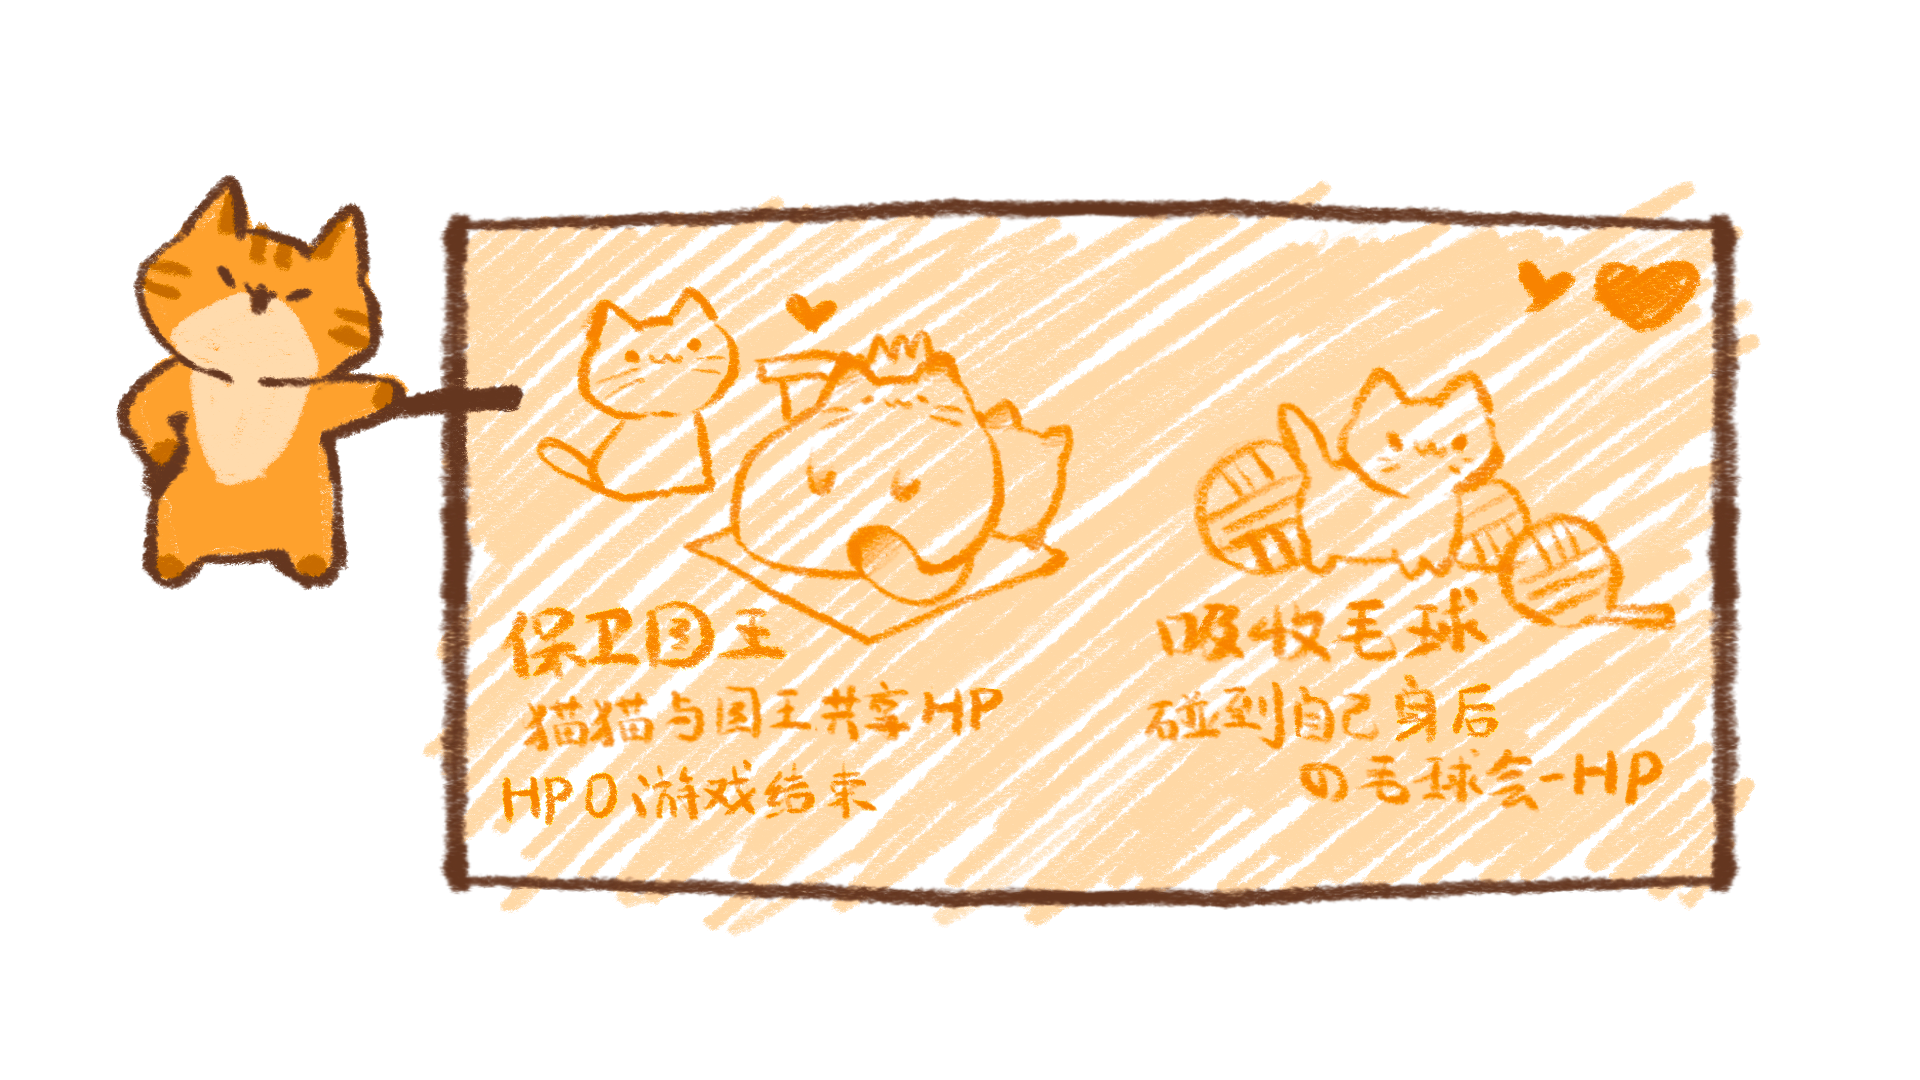 保卫国王
猫猫与国王共享HP
HP0游戏结束
吸收毛球
碰到自己身后
の毛球会-HP